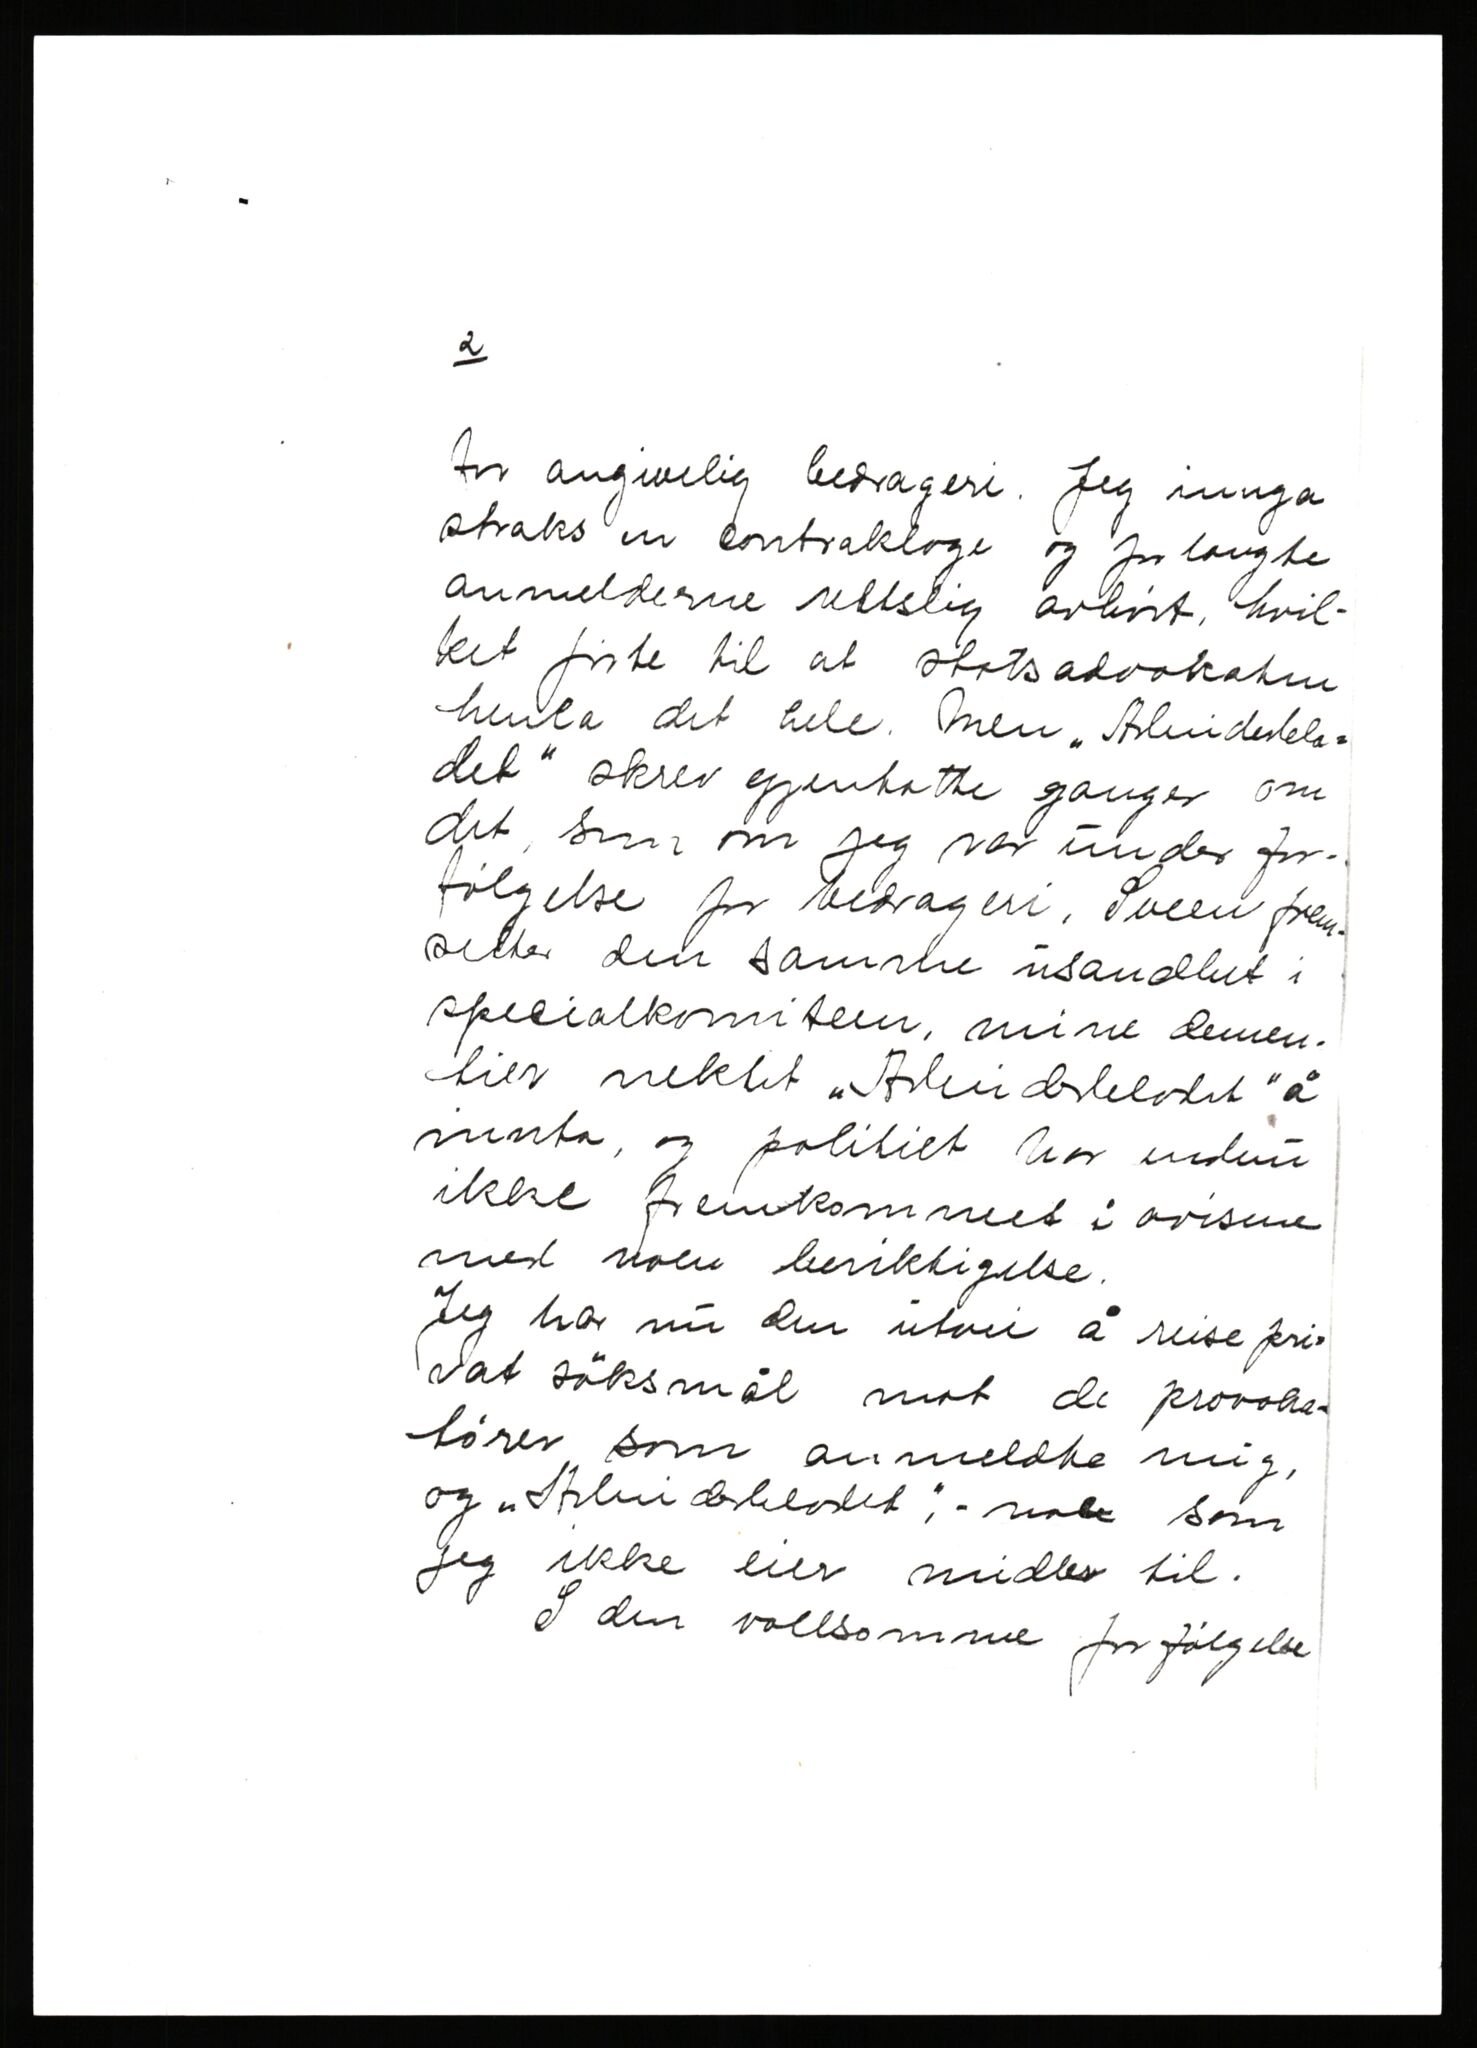 2
for angivelig bedrageri. Jeg innga
straks en contraklage og forlangte
anmelderne rettslig avhørt, hvil-
ket førte til at statsadvokaten
henla det hele. Men „Arbeiderbla-
det" skrev gjentatte ganger om
det, som om jeg var under for-
følgelse for bedrageri. Sveen frem-
setter den samme usandhet i
specialkomiteen, mine demen-
tier nektet „Arbeiderbladet" å
innta, og politiet har endnu
ikke fremkommet i avisene
med noen beriktigelse.
Jeg har nu den utvei å reise pri-
vat söksmål mot de provoka-
tører som anmeldte mig,
og „Arbeiderbladet", - noe som
jeg ikke eier midler til.
I den voldsomme forfølgelse